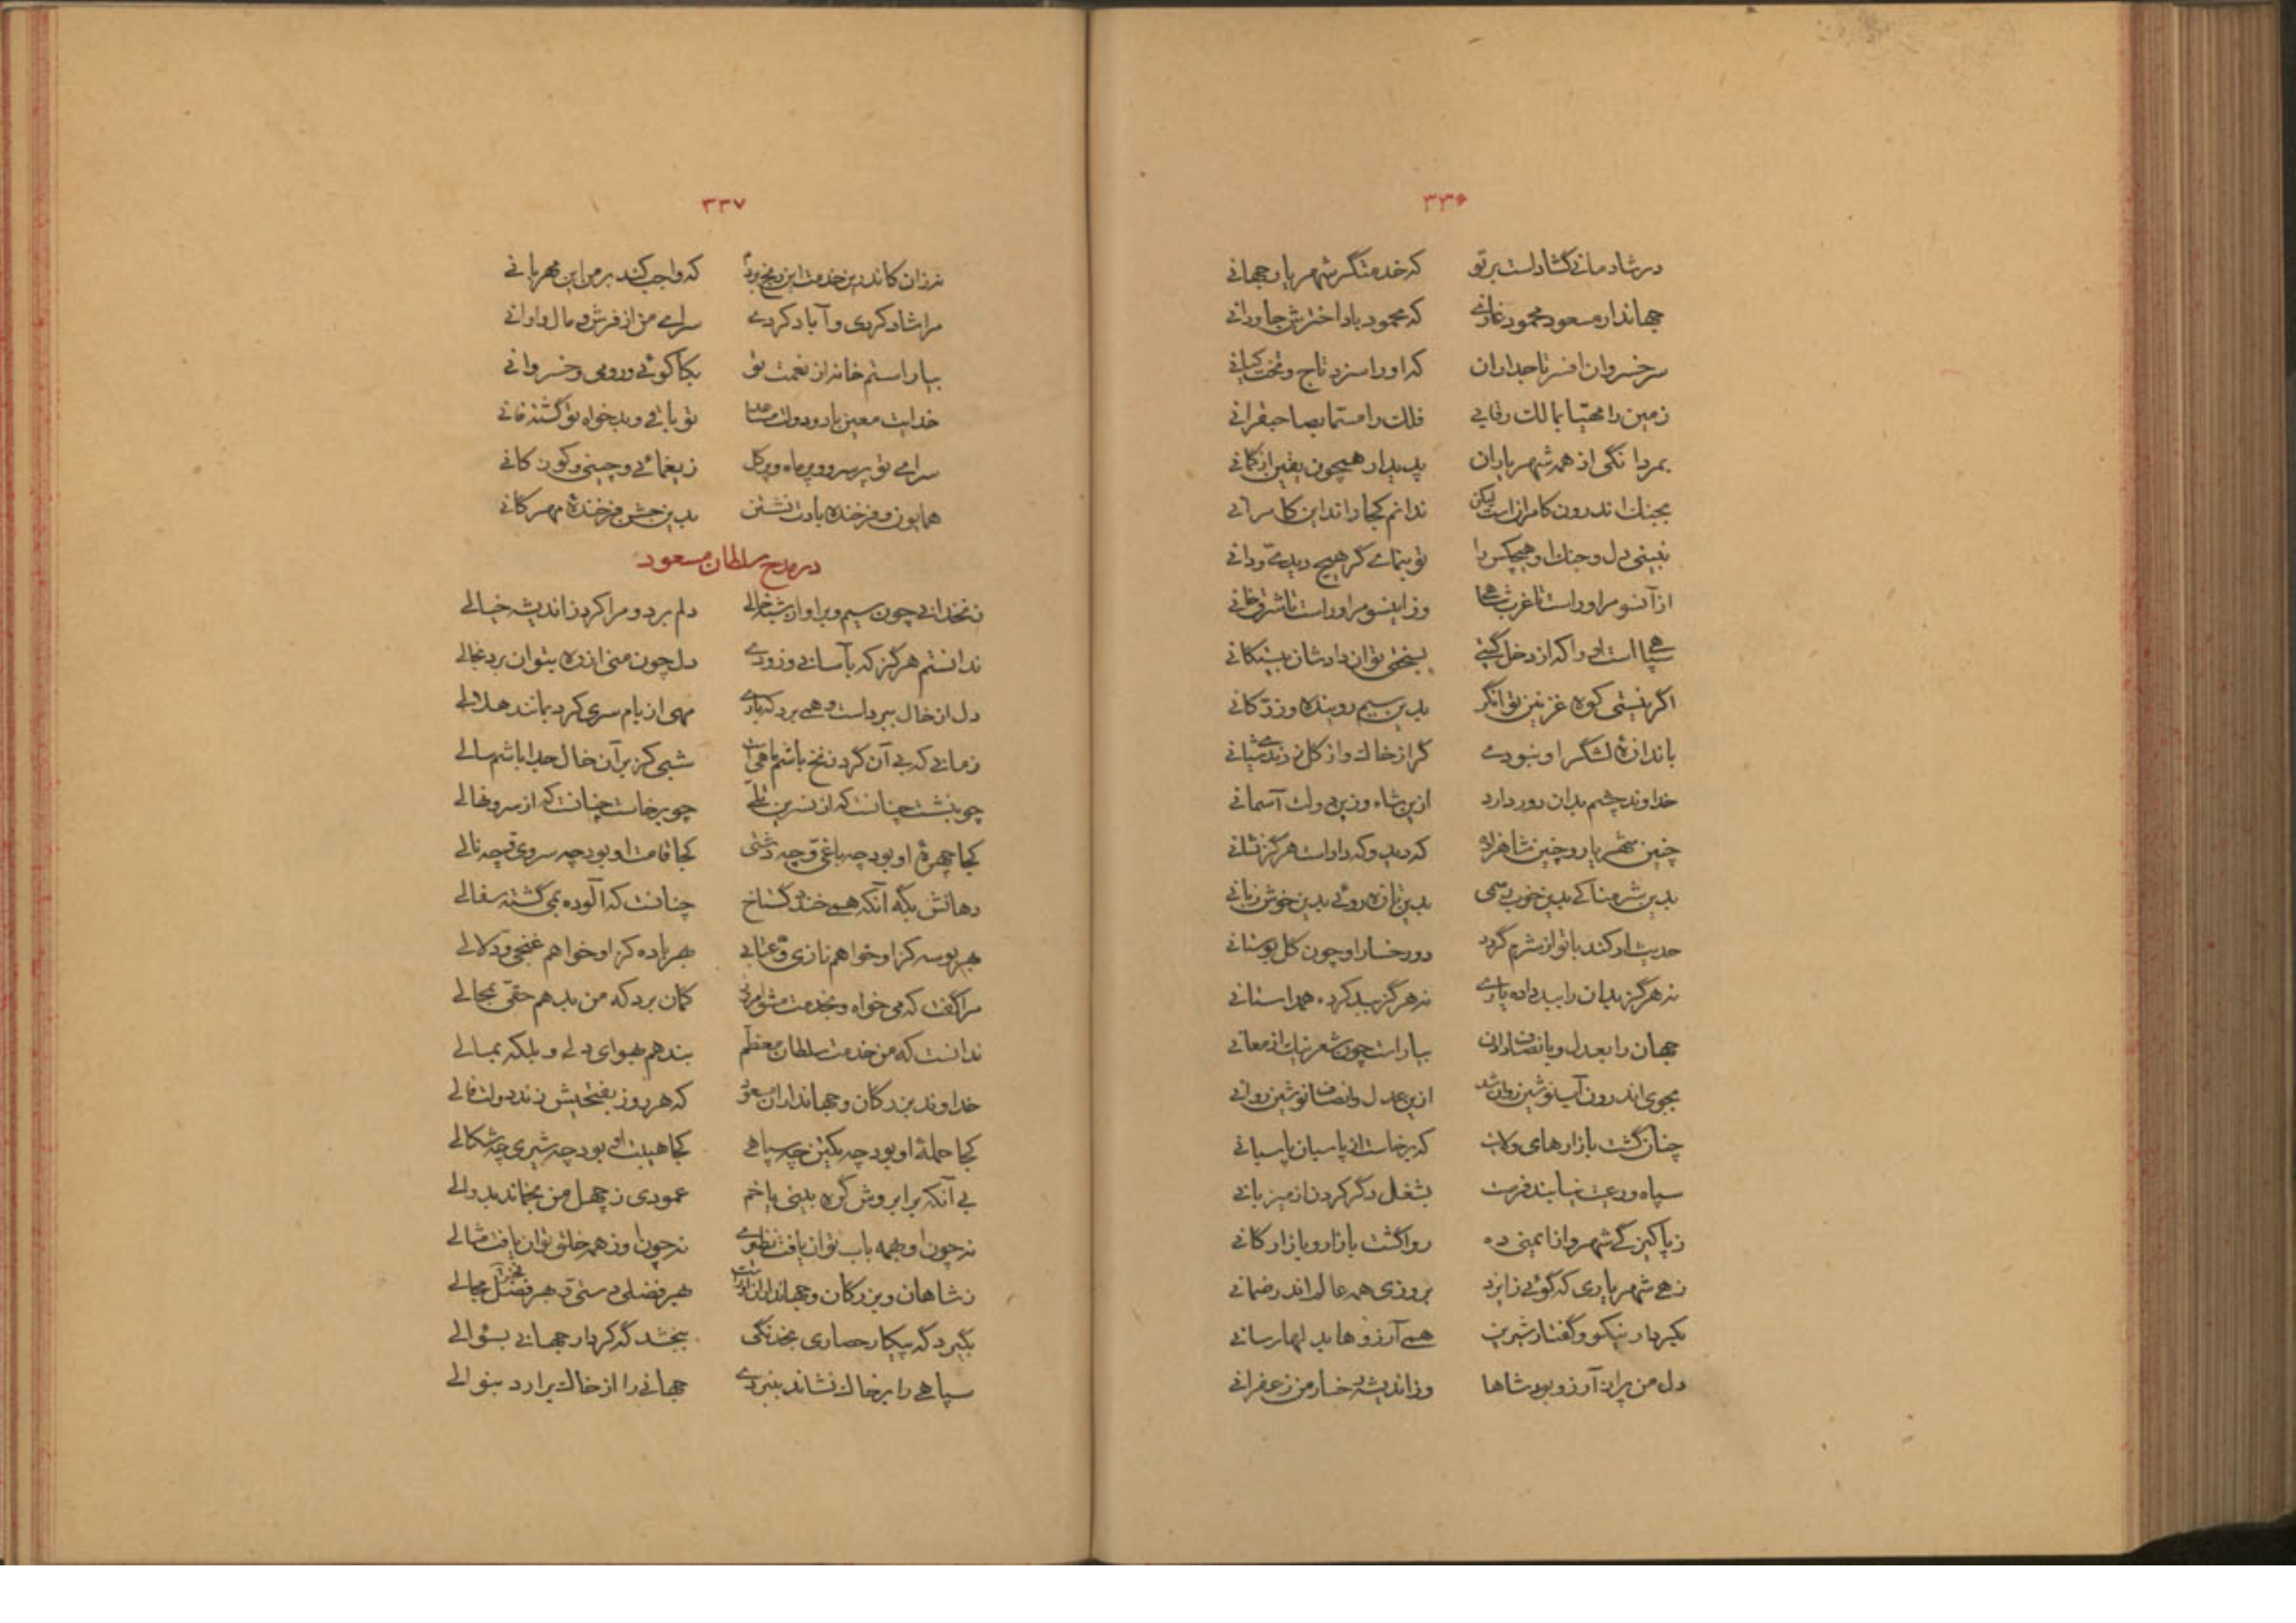 ۳۳۶
در شادمانی گشاداست بر تو که خدمتگر شهریار جهانی
جهاندار مسعود محمود غازی که محمود باد اخترش جاودانی
سر خسروان افسر تاجداران که او را سزد تاج و تخت کیانی
زمین را مهیا بمالک رقابی فلک را مسما بصاحبقرانی
بمردانگی از همه شهریاران پدیدار همچون یقین از گمانی
بجنگ اندرون کامرانست لیکن ندانم کجا راند این کامرانی
نبینی دل و جنگ او هیچکس را تو بنمای گر هیچ دیدی و دانی
از آنسو مر او راست تا غرب شاهی وز اینسو مر او راست تا شرق خانی
سپاهی است او را که از دخل گیتی بسختی توان دادشان بیستگانی
اگر نیستی کوه غزنین توانگر بدین سیم روینده و زر کانی
باندازهٔ لشگر او نبودی گر از خاک و از گل زدندی شیانی
خداوند چشم بدان دور دارد ازین شاه وزین دولت آسمانی
چنین شهریار و چنین شاهزاده که دید و که داداست هرگز نشانی
بدین شرمناکی بدین خوب رسمی بدین تازه روئی بدین خوش زبانی
حدیث ار کند با تو از شرم گردد دو رخسار او چون گل بوستانی
نه هرگز بدان را ببد داده یاری نه هرگز ببد کرده همداستانی
جهان را بعدل و بانصاف دادن بیاراست چون شعر نیک از معانی
بجوی اندرون آب نوشین روان شد ازین عدل و انصاف نوشین روانی
چنان گشت بازارهای ولایت که برخاست از پاسبان پاسبانی
سپاه و رعیت نیابند فرصت بشغل دگر کردن از میزبانی
ز پاکیزگی شهر و از ایمنی ده روا گشت بازار و بازارگانی
زهی شهریاری که گوئی ز ایزد بروزی همه عالم اندر ضمانی
بکردار نیکو و گفتار شیرین همی آرزوها بدلها رسانی
دل من پر از آرزو بود شاها وز اندیشه رخسار من زعفرانی
۳۳۷
نه زان کاندرین خدمت این رنج بردم که واجب کند بر من این مهربانی
مرا شاد کردی و آباد کردی سرای من از فرش و مال و اوانی
بیاراستم خانه از نعمت تو بکاکوئی و رومی و خسروانی
خدایت معین باد و دولت مساعد تو باقی و بدخواه تو گشته فانی
سرای تو پر سرو و پر ماه و پر گل ز یغمائی و چینی و کودکانی
همایون و فرخنده بادت نشستن بدین جشن فرخندهٔ مهرگانی
در مدح سلطان مسعود
زنخدانی چون سیم و بر او از شبه خالی دلم برد و مرا کرد ز اندیشه خیالی
ندانستم هرگز که بآسانی و زودی دل چون منی از ره بتوان برد بخالی
دل از خال ببرداست و همی برد که باری مهی از بام سری کرد بمانند هلالی
زمانی که بی آن گرد زنخ باشم ماهی است شبی کز بر آن خال جدا باشم سالی
چو بنشست چنانست که از نسرین تلی چو برخاست چنانست که از سرو نهالی
کجا چهرهٔ او بود چه باغی و چه دشتی کجا قامت او بود چه سروی و چه نالی
دهانش بگه آنکه همی خندد گستاخ چنانست که آلوده بمی گشته سفالی
بهر بوسه کز او خواهم نازی و عتابی بهر باده کز او خواهم غنجی و دلالی
مرا گفت که می خواه و بخدمت مشو امروز گمان برد که من بدهم حقی بمحالی
ندانست که من خدمت سلطان معظم بندهم بهوای دلی و بلکه بمالی
خداوند بزرگان و جهانداران مسعود که هر روز بفتحیش زند دولت فالی
کجا حملهٔ او بود چه یکتن چه سپاهی کجا هیبت او بود چه شیری چه شکالی
بی آنکه بر ابروش گره بینی یا خم عمودی ز چهل من بخماند بدوالی
نه چون او بهمه باب توان یافت نظیری نه چون او ز همه خلق توان یافت مثالی
ز شاهان و بزرگان و جهانداران او راست بهر فضلی دستی و بهر فضل مجالی
بگیرد گه پیکار حصاری بخدنگی ببخشد گه کردار جهانی بسئوالی
سپاهی را بر خاک نشاند بنبردی جهانی را از خاک برآرد بنوالی